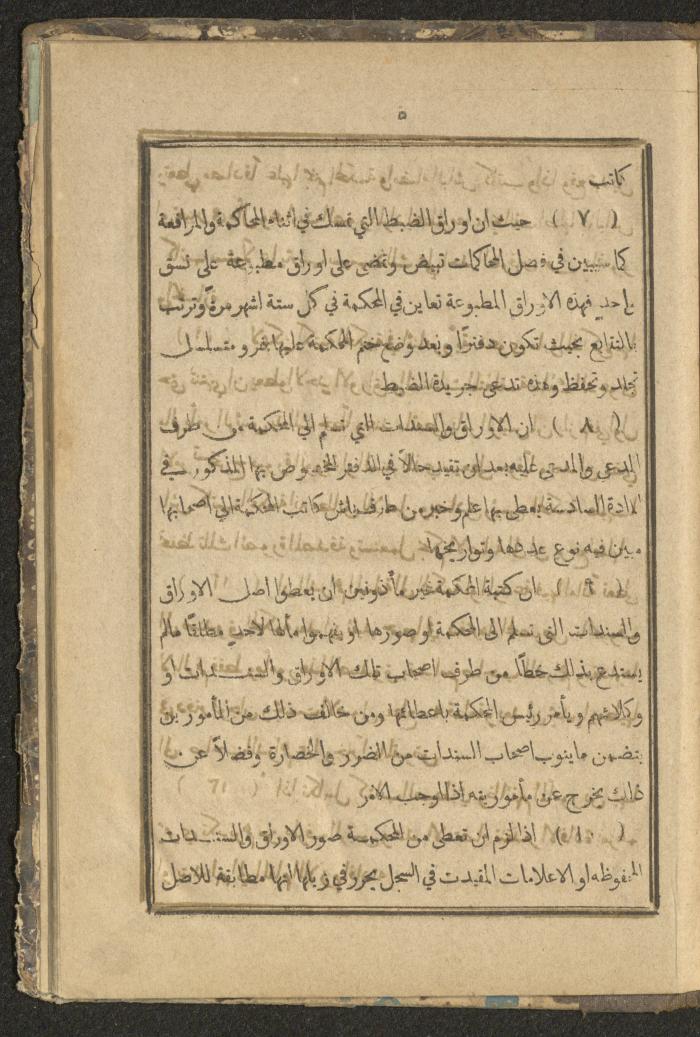 ٥
كاتب
( ٧ ) حيث ان اوراق الضبط التي تمسك في اثناء المحاكمة والمرافعة
كما سيبين في فصل المحاكمات تبيض وتمضى على اوراق مطبوعة على نسق
واحد فهذه الاوراق المطبوعة تعاين في المحكمة في كل ستة اشهر مرةً وترتب
بالتتابع بحيث تكون دفترًا وبعد وضع ختم المحكمة عليها نمرو متسلسل
تجلد وتحفظ وهذه تدعى جريدة الضبط
( ٨ ) ان الاوراق والسندات التي تسلم الى المحكمة من طرف
المدعي والمدعى عليه بعد ان تقيد حالاً في الدفتر المخصوص بها المذكور في
المادة السادسة يعطى بها علم وخبر من طرف باش كاتب المحكمة الى اصحابها
مبين فيه نوع عددها وتواريخها
( ٩ ) ان كتبة المحكمة غير مأذونين ان يعطوا اصل الاوراق
والسندات التي تسلم الى المحكمة او صورها او يفهموا مآلها لاحدٍ مطلقًا مالم
يستدع بذلك خطًا من طرف اصحاب تلك الاوراق والسندات او
وكلائهم ويأمر رئيس المحكمة باعطائها ومن خالف ذلك من المأمورين
يتضمن ما ينوب اصحاب السندات من الضرر والخصارة وفضلاً عن
ذلك يخرج عن مأموريته اذا اوجب الامر
( ١٠ ) اذا لزم ان تعطى من المحكمة صور الاوراق والسندات
المحفوظه او الاعلامات المقيدت في السجل يحرر في زيلها انها مطابقة للاصل